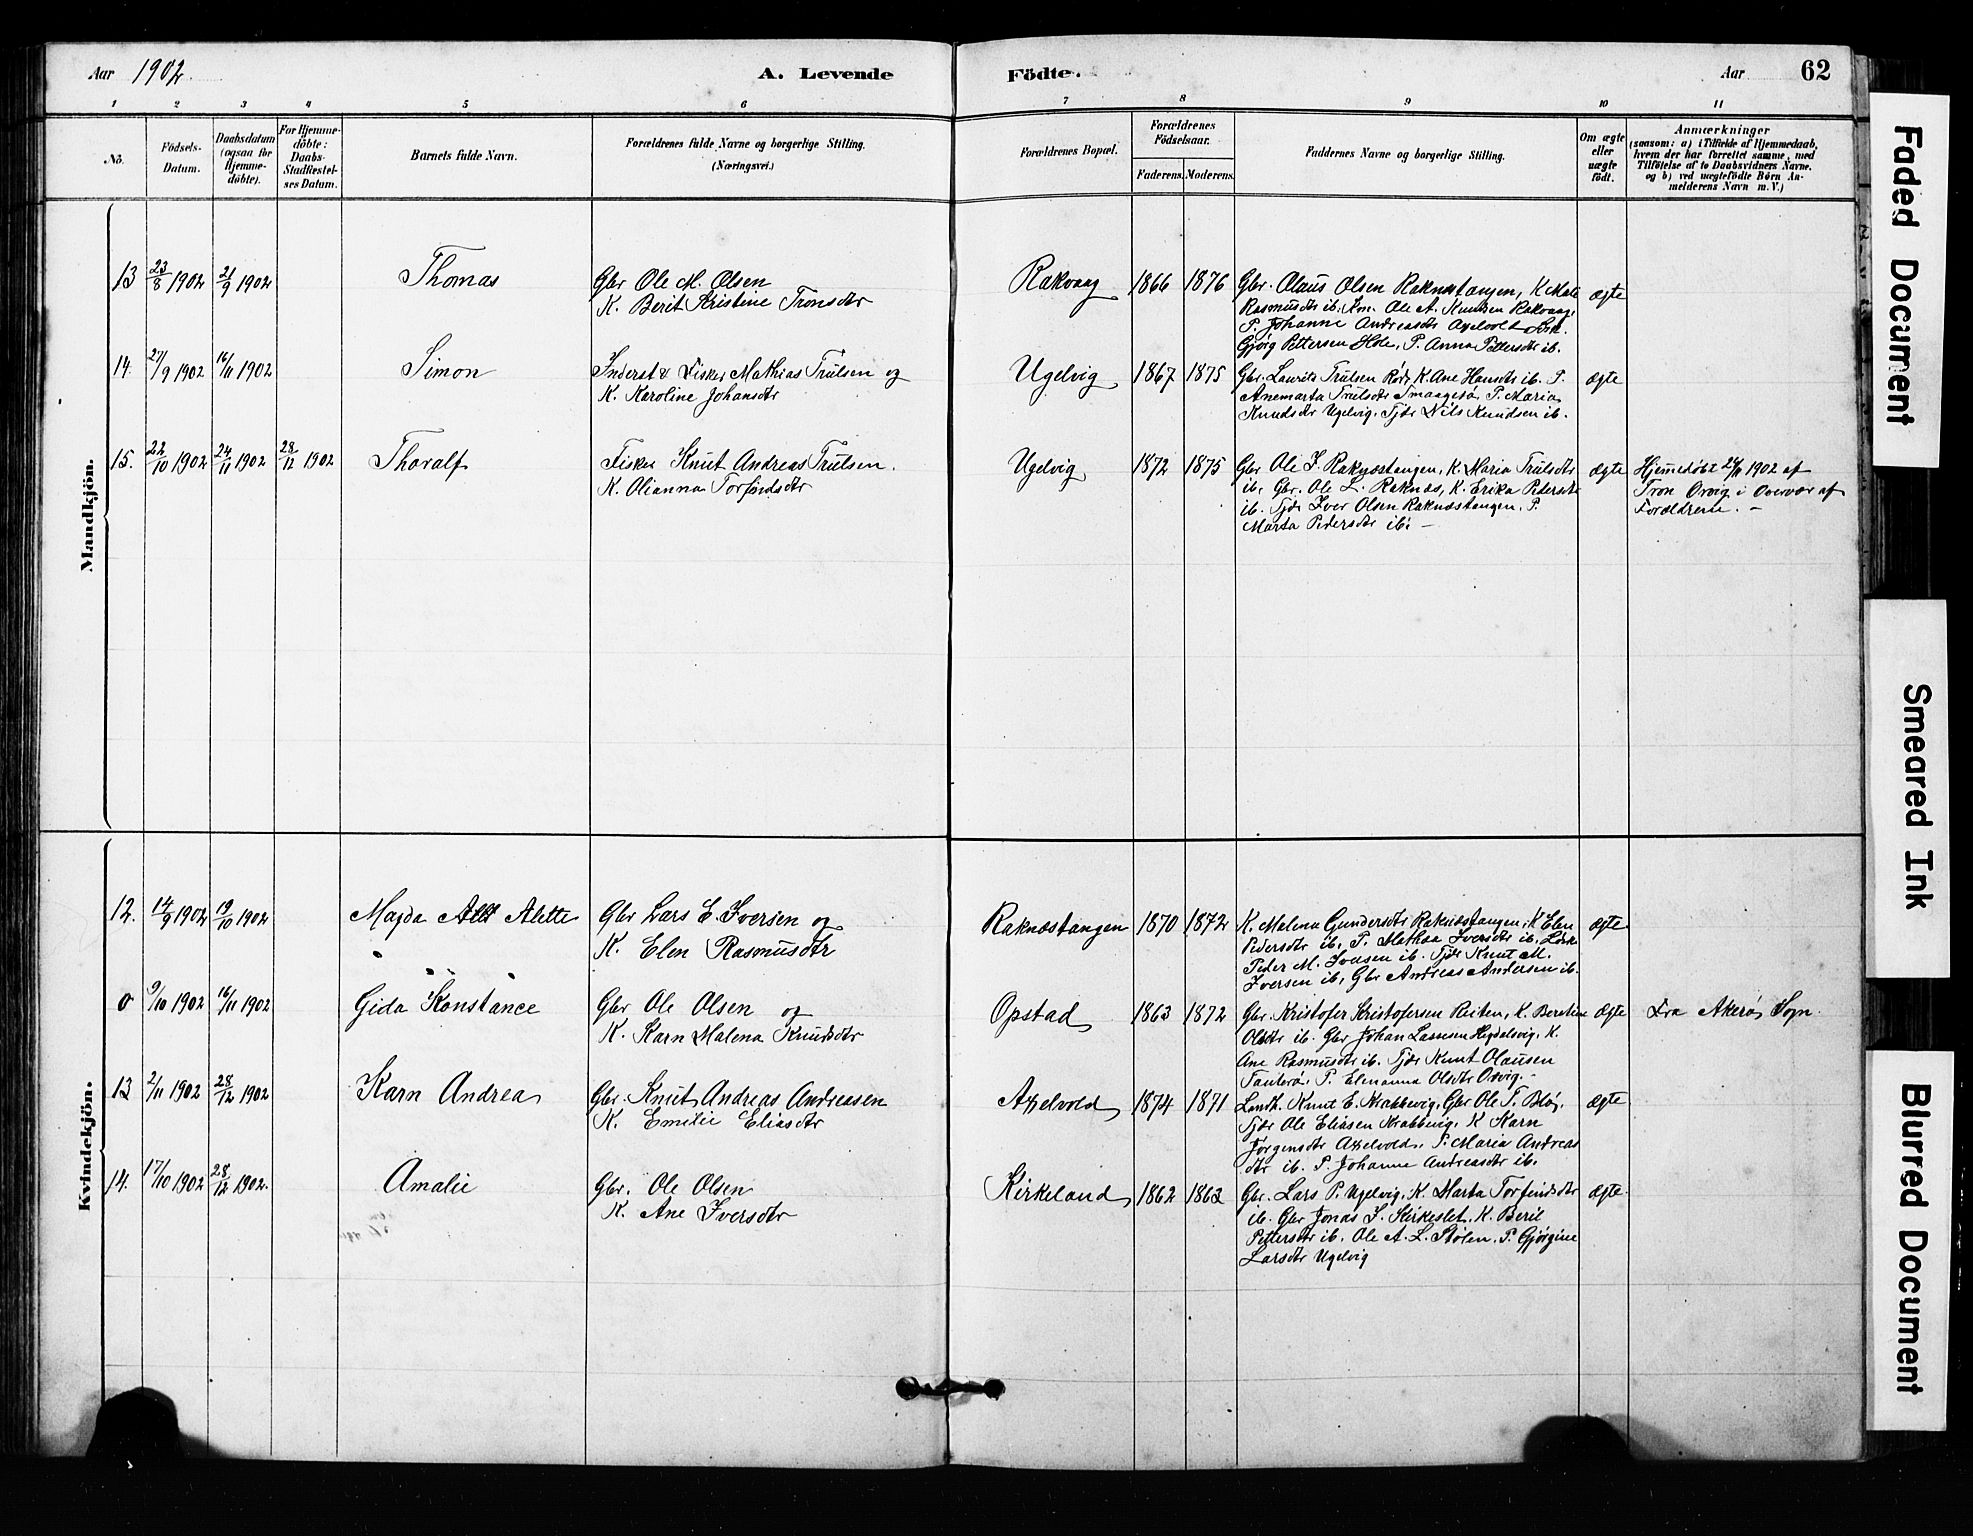 Aar 1902.
A. Levende
Födte.
Aar
62
1 2 3 4 5 6 7 8 9 10 11
No.
Födsels-
Datum.
Daabsdatum
(ogsaa for
Hjemme-
döbte).
For Hjemme-
döbte:
Daabs-
Stadfæstel-
ses Datum.
Barnets fulde Navn.
Forældrenes fulde Navne og borgerlige Stilling.
(Næringsvei.)
Forældrenes Bopæl.
Forældrenes
Födselsaar.
Faderens. Moderens.
Faddernes Navne og borgerlige Stilling.
Om ægte
eller
uægte
födt.
Anmærkninger
(saasom: a) i Tilfælde af Hjemmedaab,
hvem der har forrettet samme, med
Tilföielse af to Daabsvidners Navne.
og b) ved uægtefödte Börn An-
melderens Navn m. V.)
Mandkjön.
13 23/8 1902 21/9 1902 Thomas
Gbr Ole M. Olsen
K. Berit Kristine Tronsdtr
Rakvaag 1866 1876
Gbr. Olaus Olsen Raknæstangen, K Mate
Rasmusdtr ib. Em. Ole A. Knutsen Rakvaag,
P. Johanne Andreasdtr Axelvold
Gjörg Pettersen Hole, P. Anna Pettersdtr ib.
ægte
14. 27/9 1902 16/11 1902 Simon
Inderst & Fisker Mathias Trulsen og
K. Karoline Johansdtr
Ugelvig 1867 1875
Gbr. Laurits Trulsen Röd, K. Ane Hansdtr ib. P.
Anemarta Trulsdtr Smaagesö, P. Maria
Knudsdtr Ugelvig, Tjdr Nils Knudsen ib.
ægte
15. 22/10 1902 24/11 1902 28/12 1902 Thoralf
Fisker Knut Andreas Trulsen.
K. Olianna Torfindsdtr
Ugelvig 1872 1875
Gbr Ole J. Raknæstangen, K. Maria Trulsdtr
ib, Gbr. Ole L. Raknæs, K. Erika Pedersdtr
ib. Tjdr Iver Olsen Raknæstangen, P.
Marta Pedersdtr ib. —
ægte
Hjemmedöbt 24/11 1902 af
Tron Orvig i Overvær af
Forældrene. —
Kvindekjön.
12. 14/9 1902 19/10 1902 Magda Alette
Gbr Lars E. Iversen og
K. Elen Rasmusdtr
Raknæstangen 1870 1872
K. Malena Gundersdtr Raknæstangen, K Elen
Pedersdtr ib, P. Mathea Iversdtr ib.
Peder M. Iversen ib. Tjdr Knut M.
Iversen ib, Gbr Andreas Andersen ib.
ægte
0 9/10 1902 16/11 1902 Gida Konstance
Gbr Ole Olsen og
K. Karn Malena Knudsdtr
Opstad 1863 1872
Gbr. Kristofer Kristofersen Reiten, K. Beretine
Olsdtr ib. Gbr Johan Larsen Hegdelvig, K.
Ane Rasmusdtr ib. Tjdr Knut Olausen
Tauterö, P. Elenanna Olsdtr Orvig. —
ægte
Fra Akerö Sogn.
13 2/11 1902 28/12 1902 Karn Andrea
Gbr. Knut Andreas Andreasen
K. Emilie Eliasdtr
Axelvold 1874 1871
Landh. Knut E. Krabbevig, Gbr Ole T. Blö,
Tjdr Ole Eliasen Krabbevig, K Karn
Jörgensdtr Axelvold, P. Maria Andreas
dtr ib. P. Johanne Andreasdtr ib.
ægte
14. 17/10 1902 28/12 1902. Amalie
Gbr. Ole Olsen
K. Ane Iversdtr
Kirkeland 1862 1863
Gbr. Lars P. Ugelvig, K. Marta Torfindsdtr
ib. Gbr Jonas I. Kirkeslet, K. Beril
Pettersdtr ib, Ole A. L. Stölen, P. Gjörgine
Larsdtr Ugelvig
ægte
Faded Document
Smeared Ink
Blurred Document